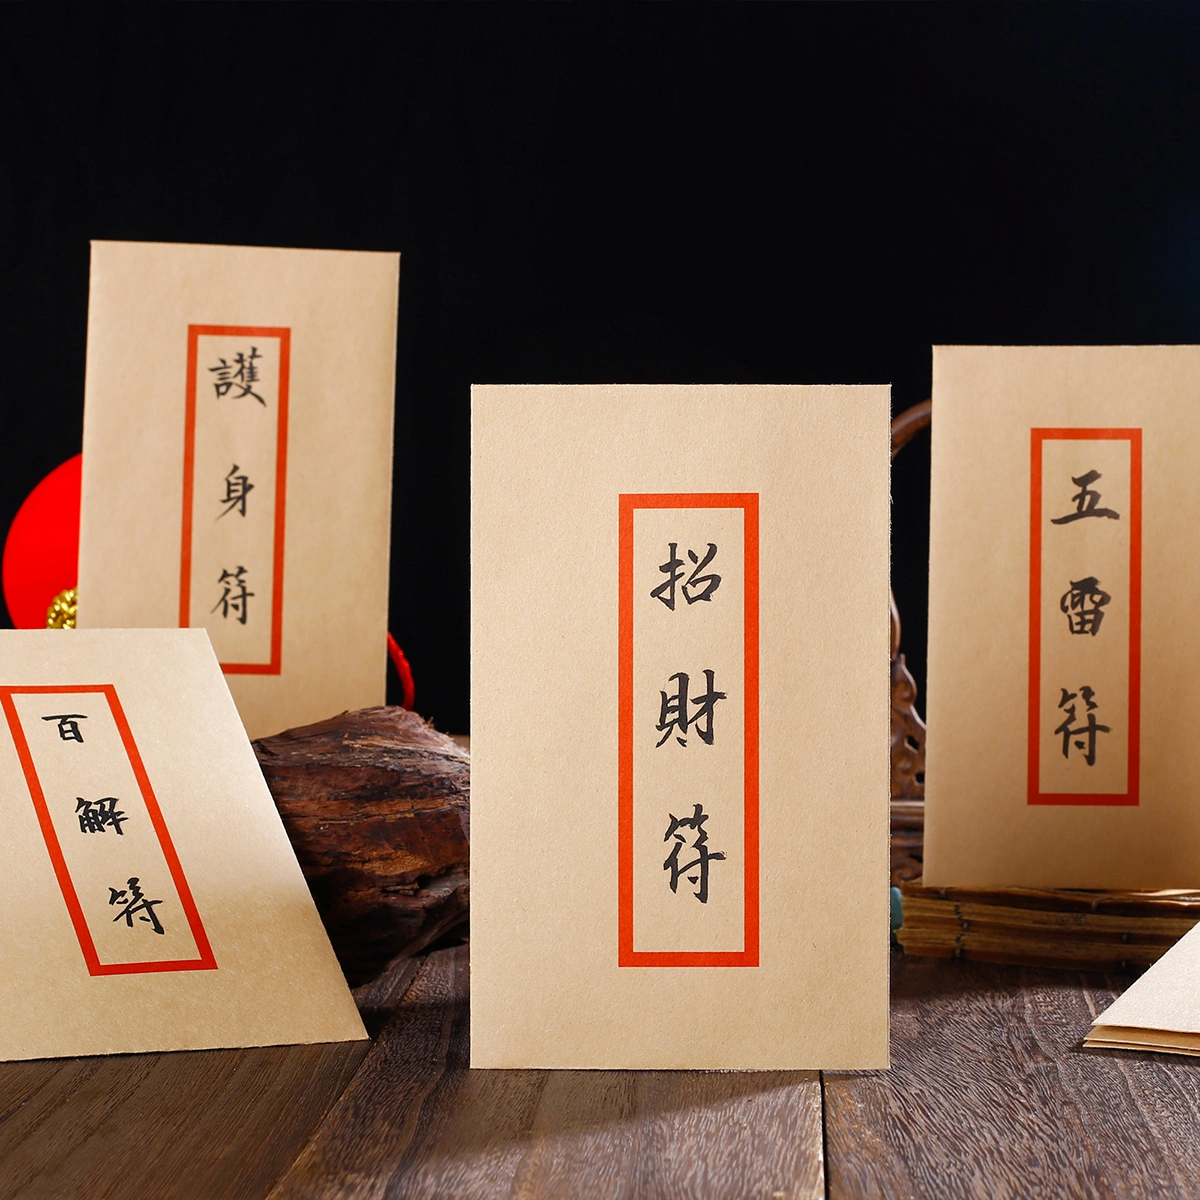 護身符
百解符
招財符
五雷符